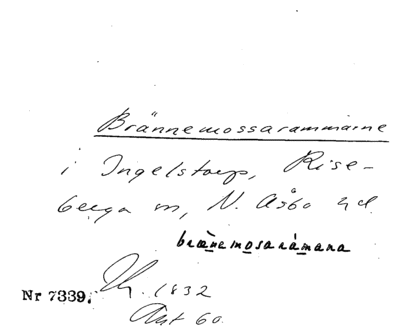 Brännemossarammarne
i Ingelstorp, Rise-
berga sn, N. Åsbo hd.
brænemosaramana
Nr 7339. 1832
Akt 60.